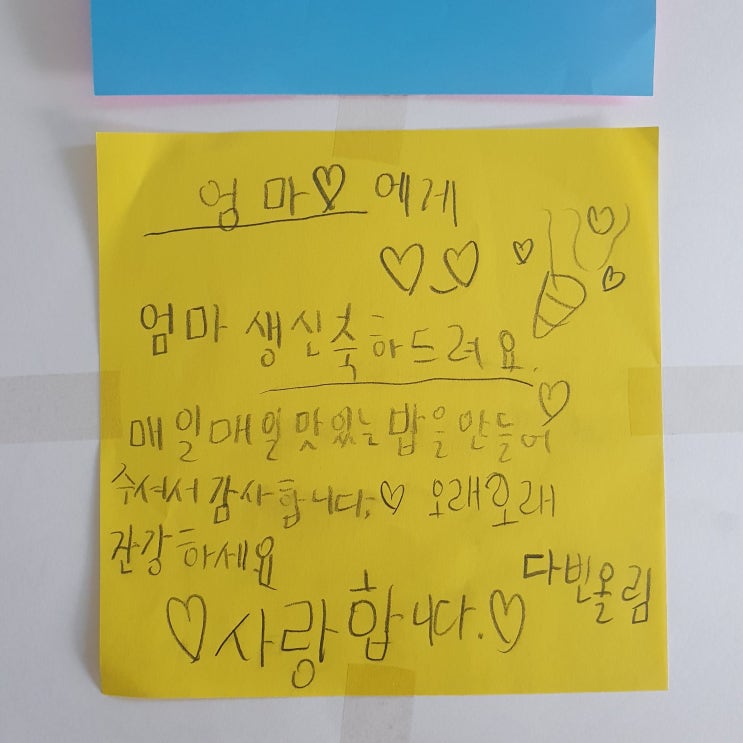 엄마♡ 에게
♡♡
엄마 생신축하드려요.
매일매일 맛있는 밥을 만들어
주셔서 감사합니다.♡ 오래오래
잔강하세요
다빈올림
♡사랑합니다.♡